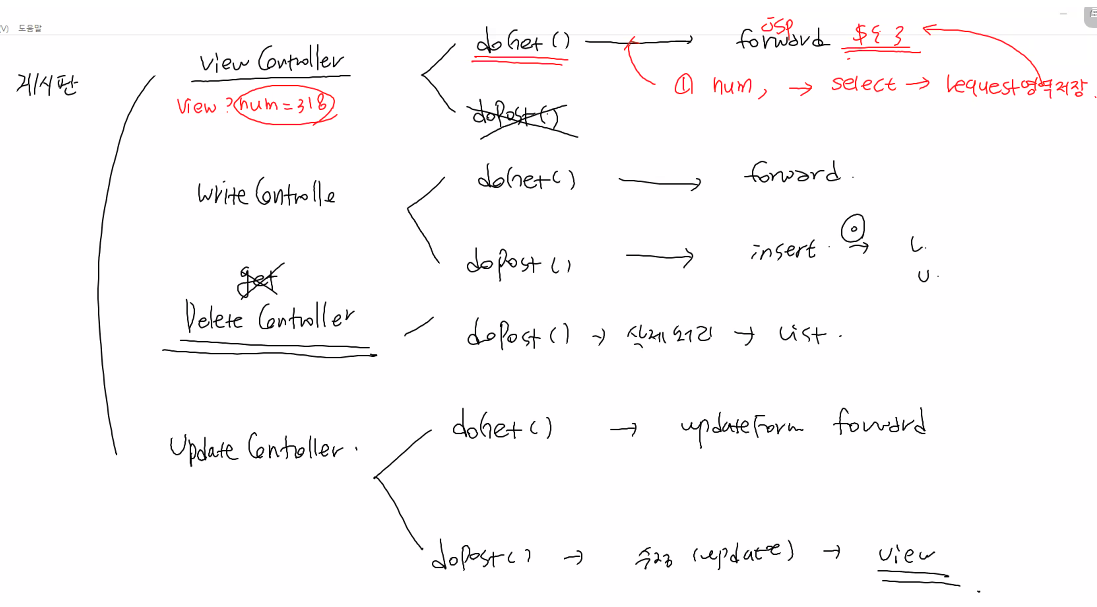 도움말
게시판
View Controller
doGet() → forward ${ }
JSP
① num, → select → request영역저장.
View?num=318
doPost()
Write Controlle
doGet() → forward.
doPost() → insert. → L.
U.
get
Delete Controller
doPost() → 삭제처리 → List.
Update Controller.
doGet() → updateForm forward
doPost() → 수정 (update) → View